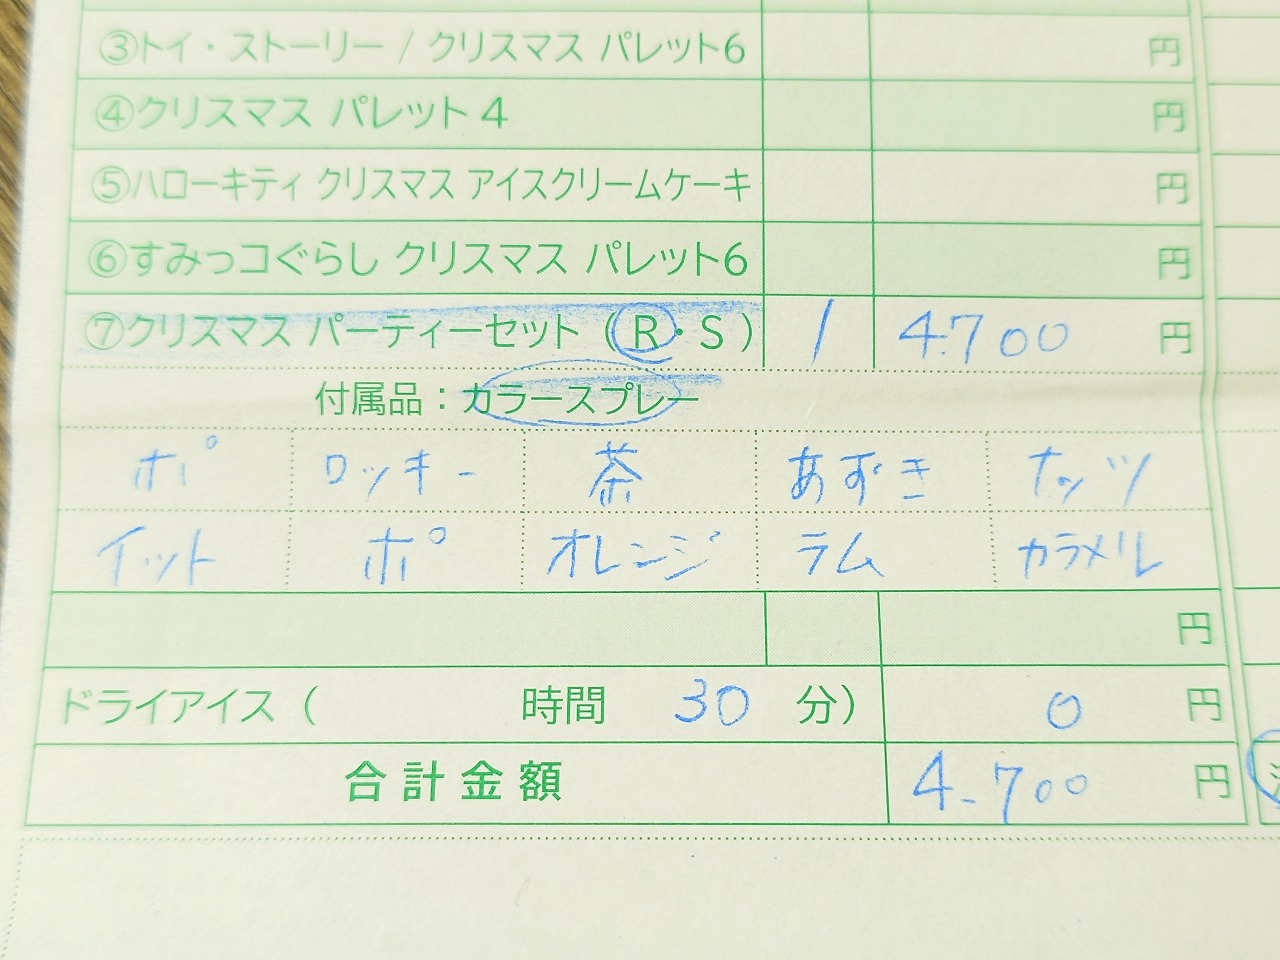 ③トイ・ストーリー / クリスマス パレット6 円
④クリスマス パレット 4 円
⑤ハローキティ クリスマス アイスクリームケーキ 円
⑥すみっコぐらし クリスマス パレット6 円
⑦クリスマス パーティーセット（R・S） 1 4.700 円
付属品：カラースプレー
ポ ロッキー 茶 あずき ナッツ
イット ポ オレンジ ラム カラメル
円
ドライアイス（ 時間 30 分） 0 円
合計金額 4.700 円